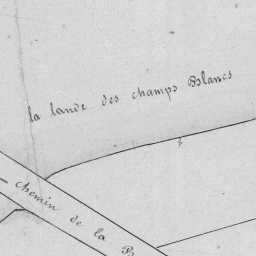 la lande des champs Blancs
chemin de la